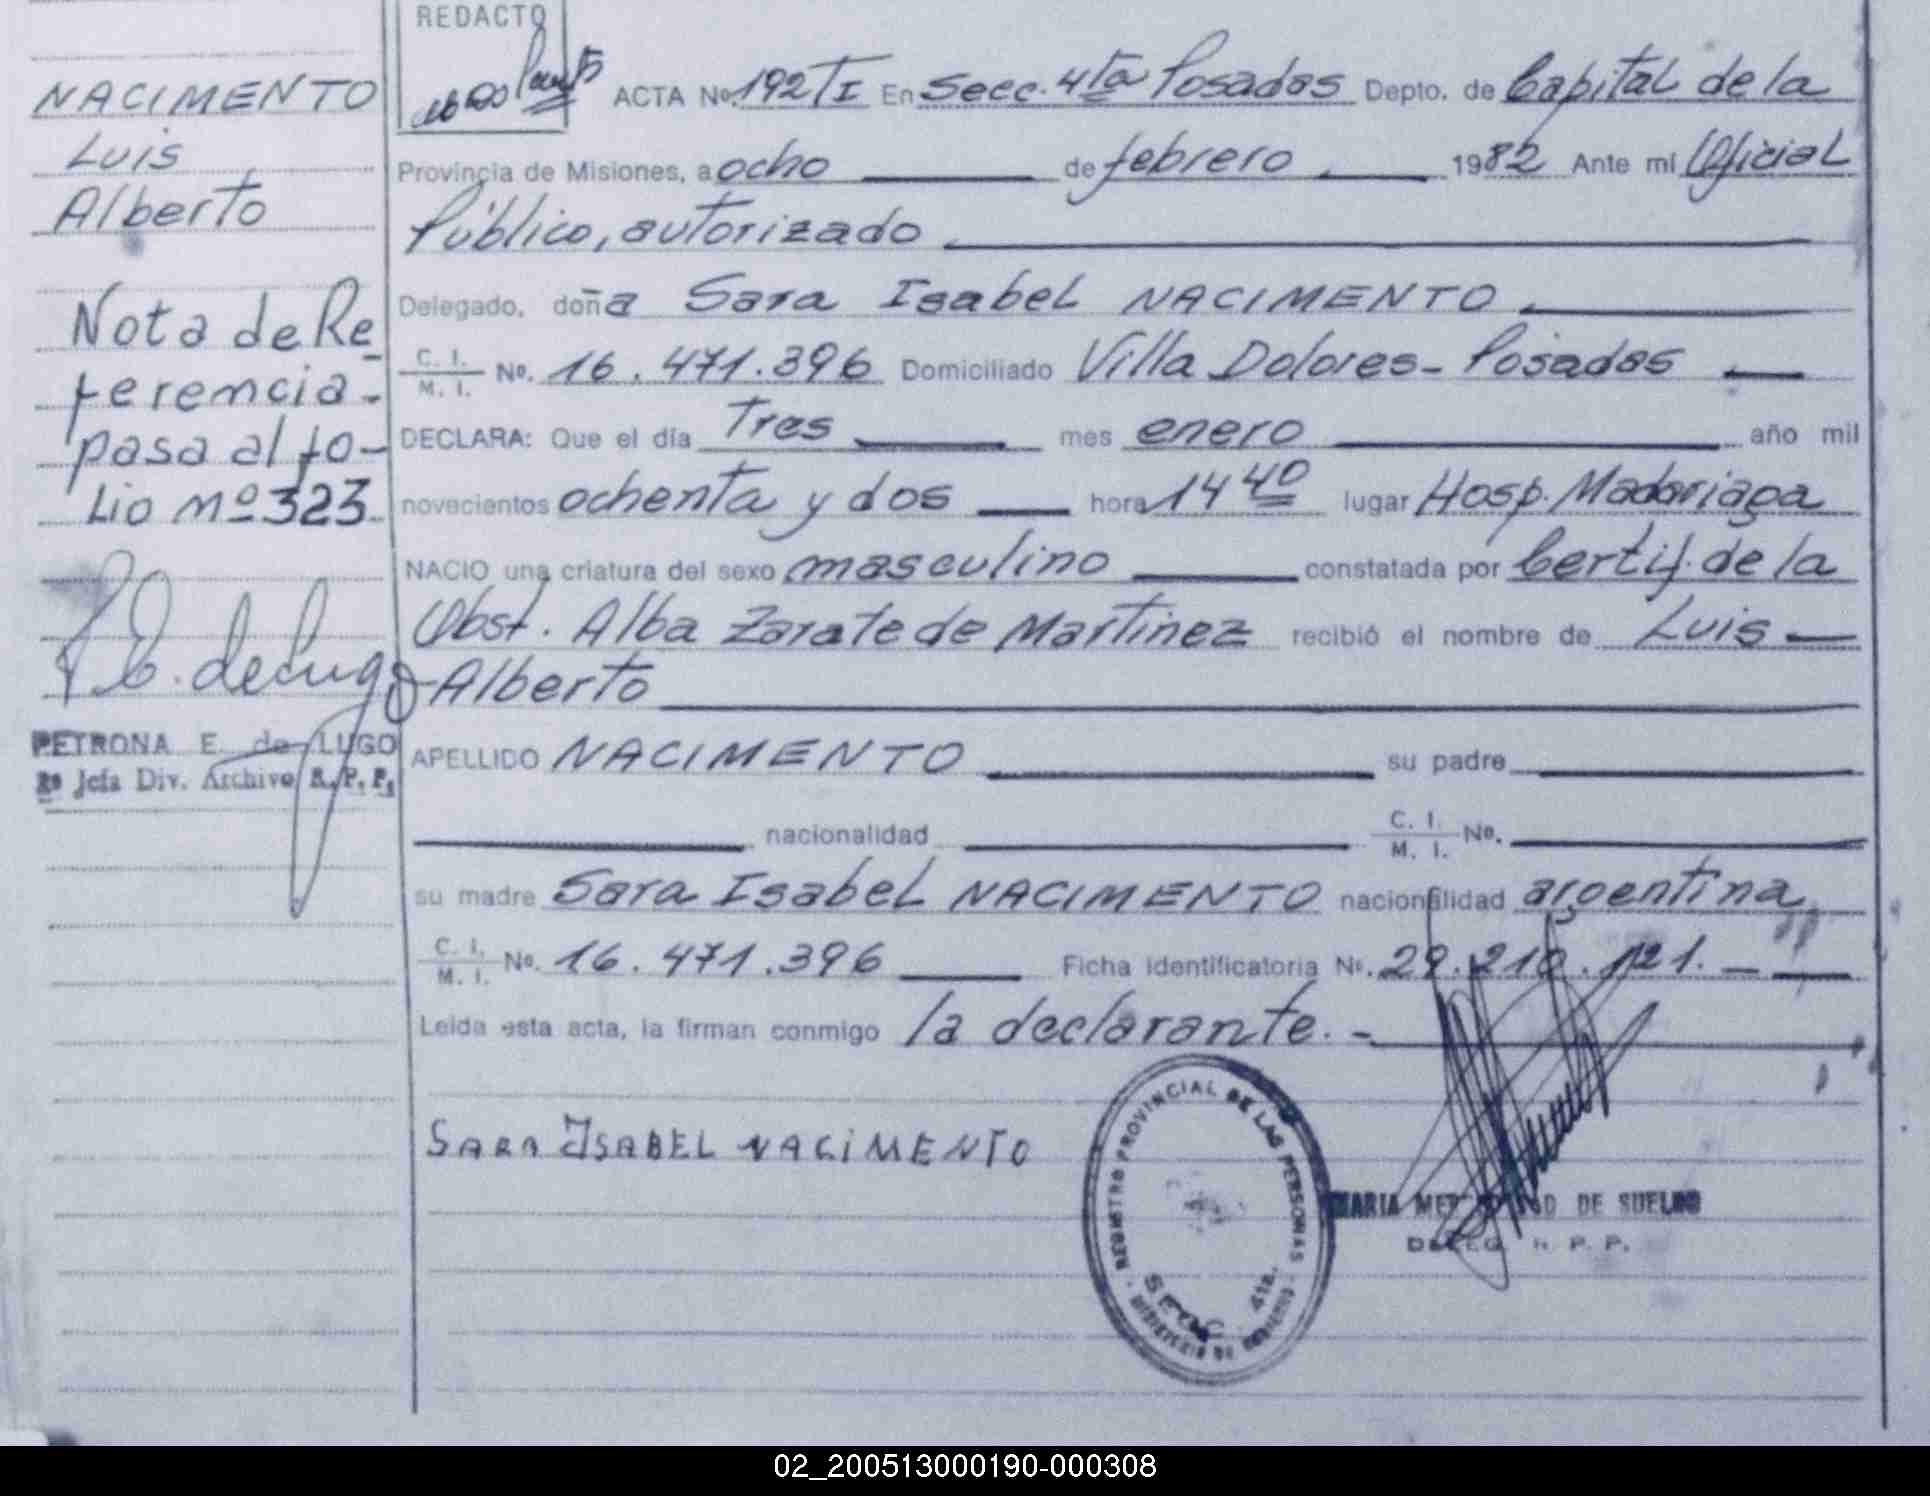 REDACTO
ACTA Nº. 192 T I En Secc. 4ta Posadas Depto. de Capital de la
Provincia de Misiones, a ocho de febrero 1982 Ante mi Oficial
Público, autorizado
Delegado, doña Sara Isabel NACIMENTO
C. I. / M. I. Nº. 16.471.396 Domiciliado Villa Dolores - Posadas
DECLARA: Que el día Tres mes enero año mil
novecientos ochenta y dos hora 14 40 lugar Hosp. Madariaga
NACIO una criatura del sexo masculino constatada por Certif. de la
Obst. Alba Zarate de Martinez recibió el nombre de Luis
Alberto
APELLIDO NACIMENTO su padre
nacionalidad C. I. / M. I. Nº.
su madre Sara Isabel NACIMENTO nacionalidad argentina
C. I. / M. I. Nº. 16.471.396 Ficha Identificatoria Nº. 29.210.121.-
Leida esta acta, la firman conmigo la declarante.-
SARA ISABEL NACIMENTO
REGISTRO PROVINCIAL DE LAS PERSONAS
4ta.
MARIA DE SUELDO
DELEG. R. P. P.
NACIMENTO
Luis
Alberto
Nota de Re
ferencia -
pasa al fo-
lio nº 323
P. E. de Lugo
PETRONA E. de LUGO
2º Jefa Div. Archivo R. P. P.
02_200513000190-000308